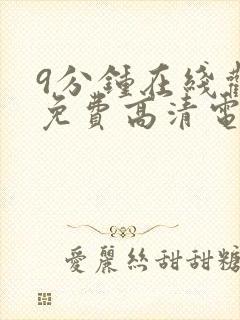 9分鍾在綫
免費高清電
愛麗絲甜甜糖